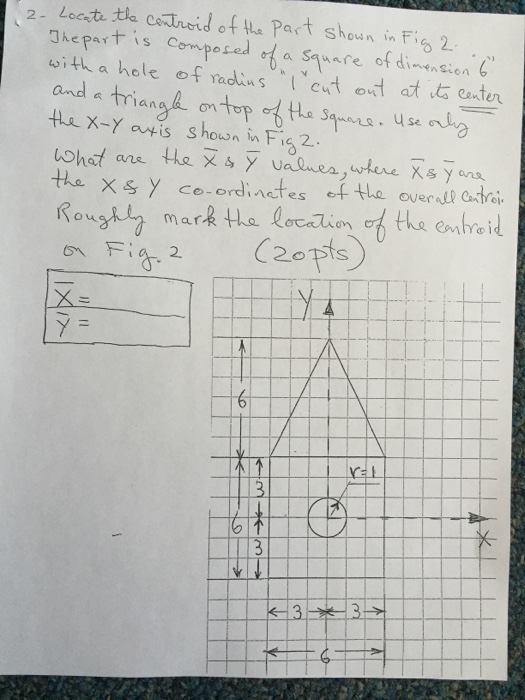 2- Locate the centroid of the Part shown in Fig 2.
The part is composed of a square of dimension "6"
with a hole of radius "1" cut out at its center
and a triangle on top of the square. Use only
the X-Y axis shown in Fig 2.
What are the X̄ & Ȳ values, where X̄ & Ȳ are
the X & Y co-ordinates of the overall
Roughly mark the location of the centroid
on Fig. 2 (20pts)
X̄ =
Ȳ =
Y
6
r=1
3
6
X
3
3 3
6